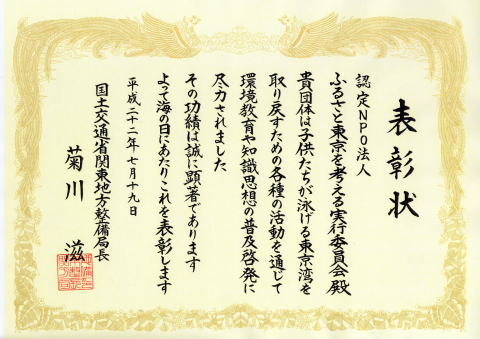 表彰状
認定NPO法人
ふるさと東京を考える実行委員会殿
貴団体は子供たちが泳げる東京湾を
取り戻すための各種の活動を通じて
環境教育や知識思想の普及啓発に
尽力されました
その功績は誠に顕著であります
よって海の日にあたりこれを表彰します
平成二十二年七月十九日
国土交通省関東地方整備局長
菊川滋